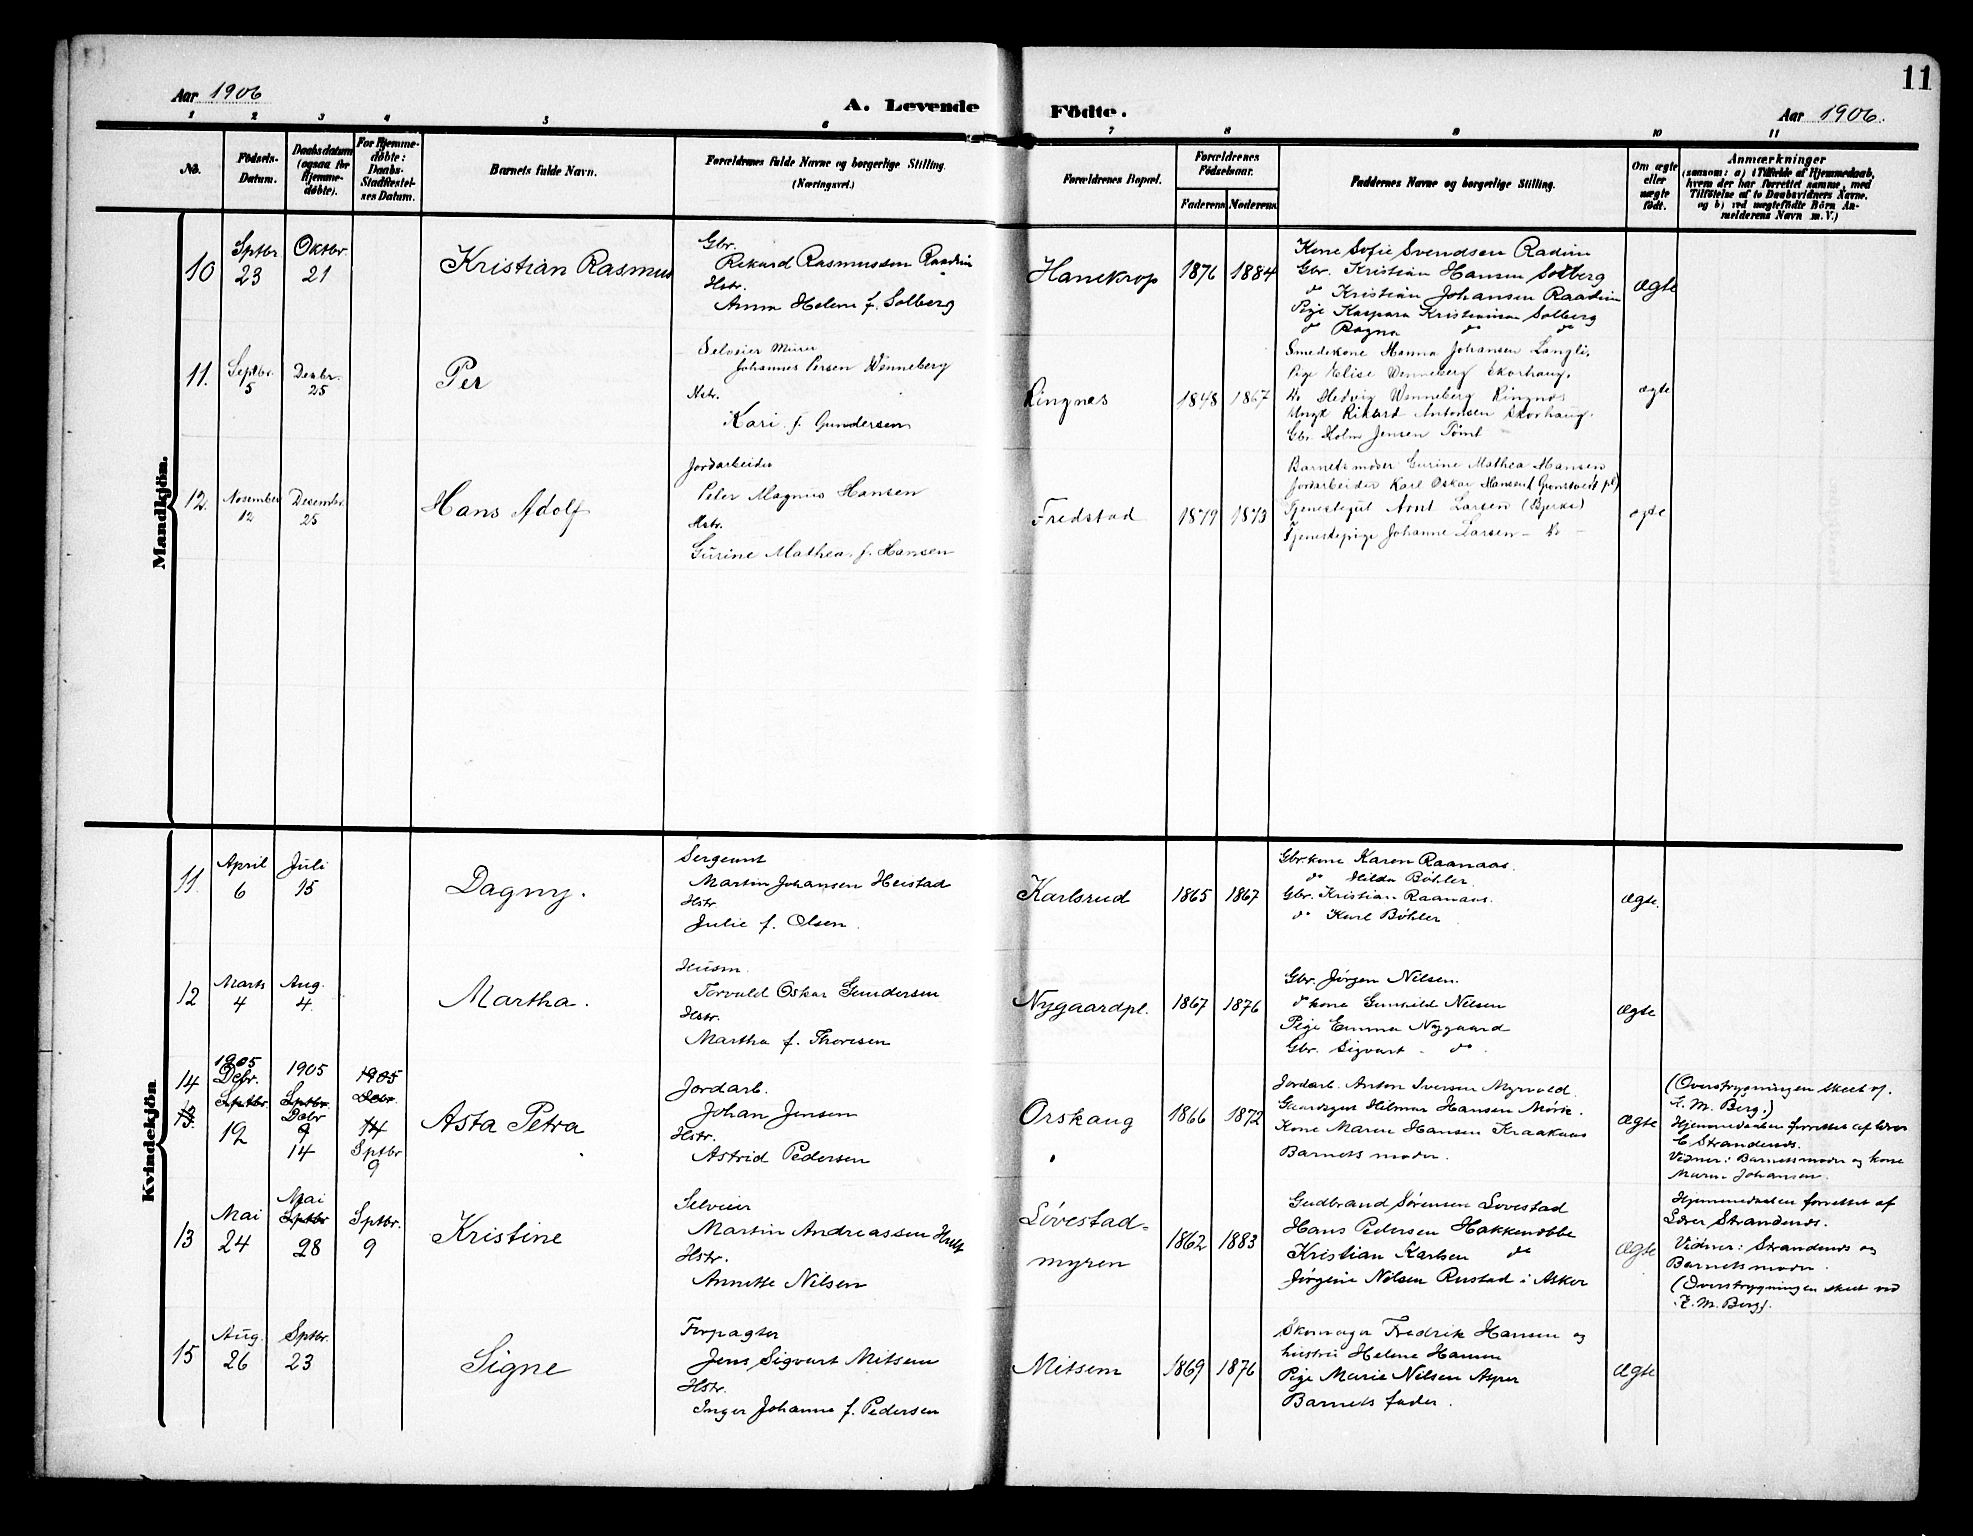 11
Aar 1906
A. Levende Födte.
Aar 1906.
1 2 3 4 5 6 7 8 9 10 11
No.
Födsels-
Datum.
Daabsdatum
(ogsaa for
Hjemme-
døbte).
For Hjemme-
døbte:
Daabs-
Stadfæstel-
ses Datum.
Barnets fulde Navn.
Forældrenes fulde Navne og borgerlige Stilling.
(Næringsvei.)
Forældrenes Bopæl.
Forældrenes
Fødselsaar.
Faderens Moderens
Faddernes Navne og borgerlige Stilling.
Om ægte
eller
uægte
født.
Anmærkninger
(saasom: a) i Tilfælde af Hjemmedaab,
hvem der har forrettet samme, med
Tilføielse af to Daabsvidners Navne.
og b) ved uægtefödte Börn An-
melderens Navn m. V.)
Mandkjön.
10
Sptbr
23
Oktbr
21
Kristian Rasmus
Gbr.
Rikard Rasmussen Raadim
Hstr.
Anna Helene f. Solberg
Hanekrop
1876
1884
Kone Sofie Svendsen Radim
Gbr. Kristian Hansen Solberg
do Kristian Johansen Raadim
Pige Kaspara Kristiansen Solberg
do Ragna do do
ægte
11.
Septbr.
5
Desbr.
25
Per
Selveier Murer
Johannes Persen Wenneberg
Hstr.
Kari f. Gundersen
Ringnes
1848
1867
Smedekone Hanna Johansen Langli.
Pige Elise Wenneberg Skorhaug.
Do Hedvig Wenneberg Ringnes
Ungk Rikard Antonsen Skorhaug.
Gbr. Kolm Jensen Tømt
ægte
12.
November
12
Desember
25
Hans Adolf
Jordarbeider
Peter Magnus Hansen
Hstr.
Gurine Mathea f. Hansen
Fredstad
1879
1873
Barnets moder Gurine Mathea Hansen
Jordarbeider Karl Oskar Hansen
Tjenestegut Arnt Larsen (Bjerke)
Tjenestepige Johanne Larsen – Do –
ægte
Kvindekjön.
11.
April
6
Juli
15
Dagny.
Sergeant
Martin Johansen Heistad
Hstr
Julie f. Olsen.
Karlsrud
1865
1867
Gbr.kone Karen Raanaas.
do Hilda Bøhler.
Gbr. Kristian Raanaas.
do Karl Bøhler
ægte.
12
Marts
4
Aug.
4.
Martha.
Husm.
Torvald Oskar Gundersen
Hstr.
Martha f. Thoresen
Nygaardpl.
1867
1876
Gbr. Jørgen Nilsen.
do kone Gunhild Nilsen
Pige Emma Nygaard
Gbr. Sigvart - do.
ægte
14
13.
1905
Debr.
Sptbr.
12
1905
Sptbr.
Debr
9
14
1905
Debr.
14
Sptbr
9
Asta Petra
Jordarb.
Johan Jensen
Hstr.
Astrid Pedersen
Orskaug
1866
1872
Jordarb. Anton Iversen Myrvold.
Gaardsgut Hilmar Hansen Mørk.
Kone Maren Hansen Kraakens
Barnets moder.
ægte
(Overstrygningen skeet af.
E. M. Berg.)
Hjemmedaaben forrettet af lærer
C Strandenæs.
Vidner: Barnets moder og kone
Maren Johansen.
13
Mai
24
Mai
Sptbr
28
Sptbr.
9
Kristine
Selveier
Martin Andreassen
Hstr.
Annette Nilsen
Løvestad-
myren
1862
1883
Gudbrand Sørensen Lovestad
Hans Pedersen Hakkenobbe
Kristian Karlsen do
Jørgine Nilsen Rustad i Asker
ægte
Hjemmedaaben forrettet af
Lærer Strandenæs.
Vidner: Strandenæs og
Barnets moder.
(Overstrygningen skeet ved
E. M. Berg).
15
Aug.
26
Sptbr.
23
Signe
Forpagter
Jens Sigvart Mitsem
Hstr.
Inger Johanne f. Pedersen
Mitsem
1869
1876
Skomager Fredrik Hansen og
hustru Helene Hansen
Pige Marie Nilsen Asper
Barnets fader.
ægte